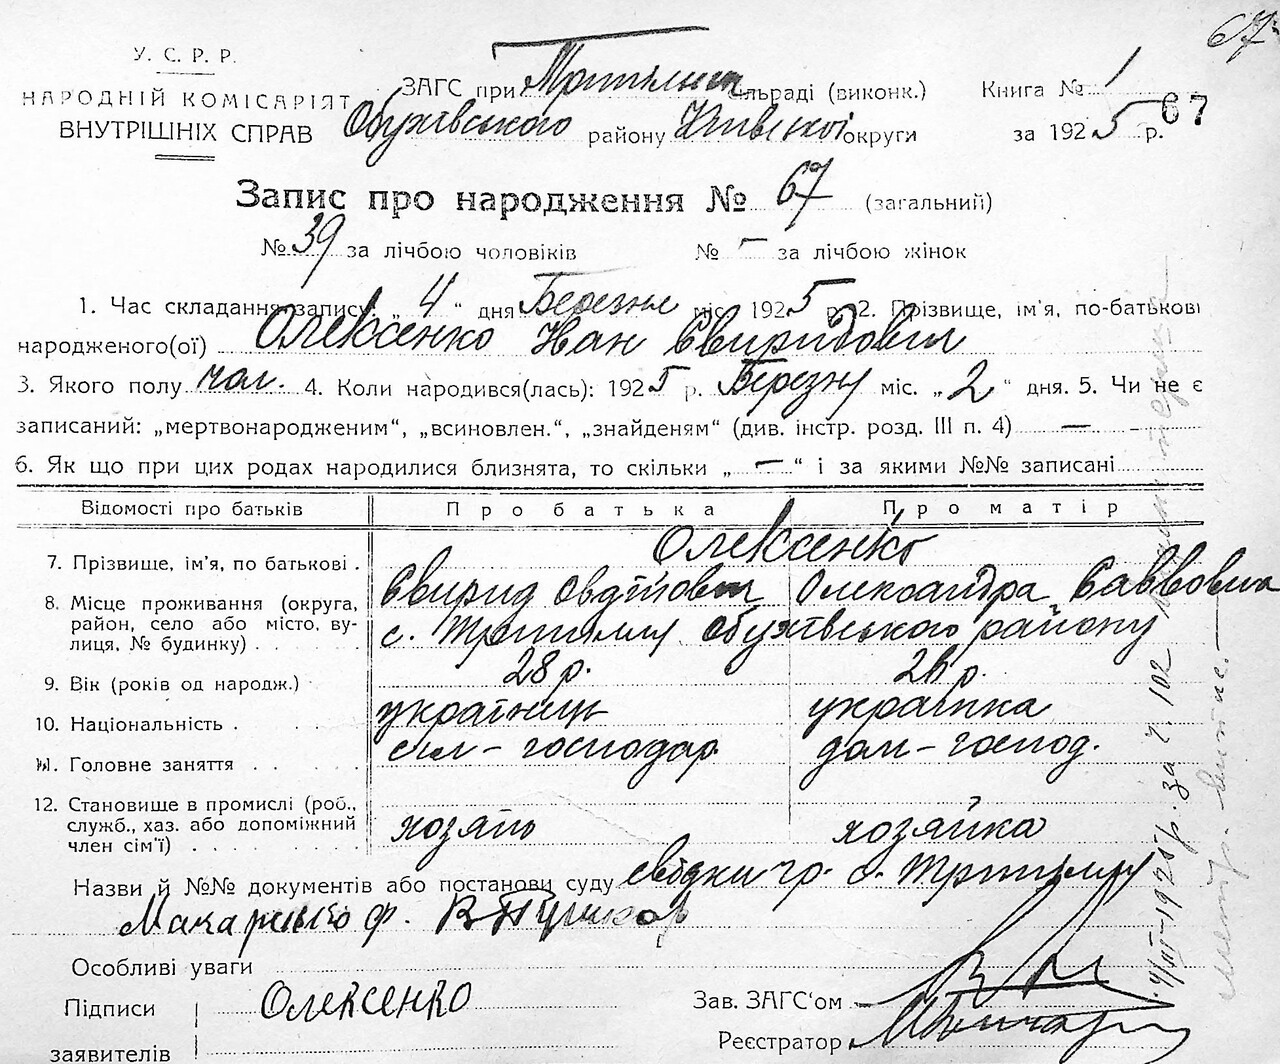 67
У. С. Р. Р.
НАРОДНІЙ КОМІСАРІЯТ
ВНУТРІШНІХ СПРАВ
ЗАГС при сільраді (виконк.)
Обухівського району Київської округи
Книга № 1
за 1925 р. 67
Запис про народження № 67 (загальний)
№ 39 за лічбою чоловіків № – за лічбою жінок
1. Час складання запису „4“ дня Березня міс. 1925 р. 2. Прізвище, ім'я, по-батькові
народженого(ої) Олексенко Іван Свиридович
3. Якого полу чол. 4. Коли народився(лась): 1925 р. Березня міс. „2“ дня. 5. Чи не є
записаний: „мертвонародженим“, „всиновлен.“, „знайденям“ (див. інстр. розд. III п. 4) —
6. Як що при цих родах народилися близнята, то скільки „–“ і за якими №№ записані
Відомості про батьків Про батька Про матір
7. Прізвище, ім'я, по батькові . Олексенко
Свирид Олександра Саввовна
8. Місце проживання (округа, район, село або місто, вулиця, № будинку) . . . . с. Обухівського району
9. Вік (років од народж.) 28 р. 26 р.
10. Національність . українець українка
11. Головне заняття . . . . . сіл-господар дом-господ.
12. Становище в промислі (роб., служб., хаз. або допоміжний член сім'ї) . . . . хозяїн хозяйка
Назви й №№ документів або постанови суду свідки гр. с.
Особливі уваги
Підписи заявителів Олексенко
Зав. ЗАГС'ом
Реєстратор
4/III-1925 р. за № 102